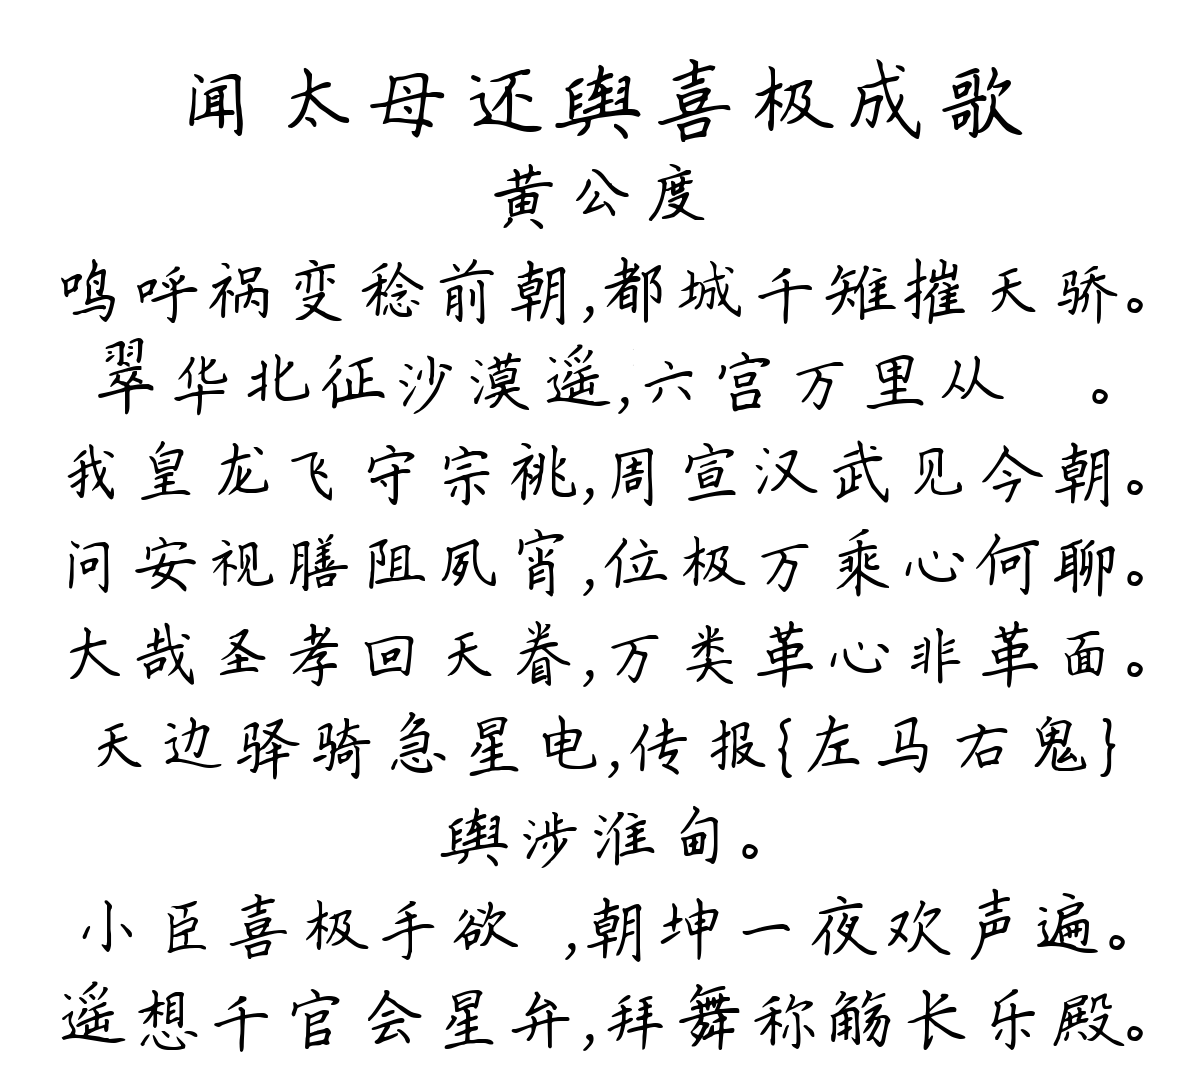 闻太母还舆喜极成歌
黄公度
鸣呼祸变稔前朝,都城千雉摧天骄。
翠华北征沙漠遥,六宫万里从 。
我皇龙飞守宗祧,周宣汉武见今朝。
问安视膳阻夙宵,位极万乘心何聊。
大哉圣孝回天眷,万类革心非革面。
天边驿骑急星电,传报{左马右鬼}
舆涉淮甸。
小臣喜极手欲 ,朝坤一夜欢声遍。
遥想千官会星弁,拜舞称觞长乐殿。